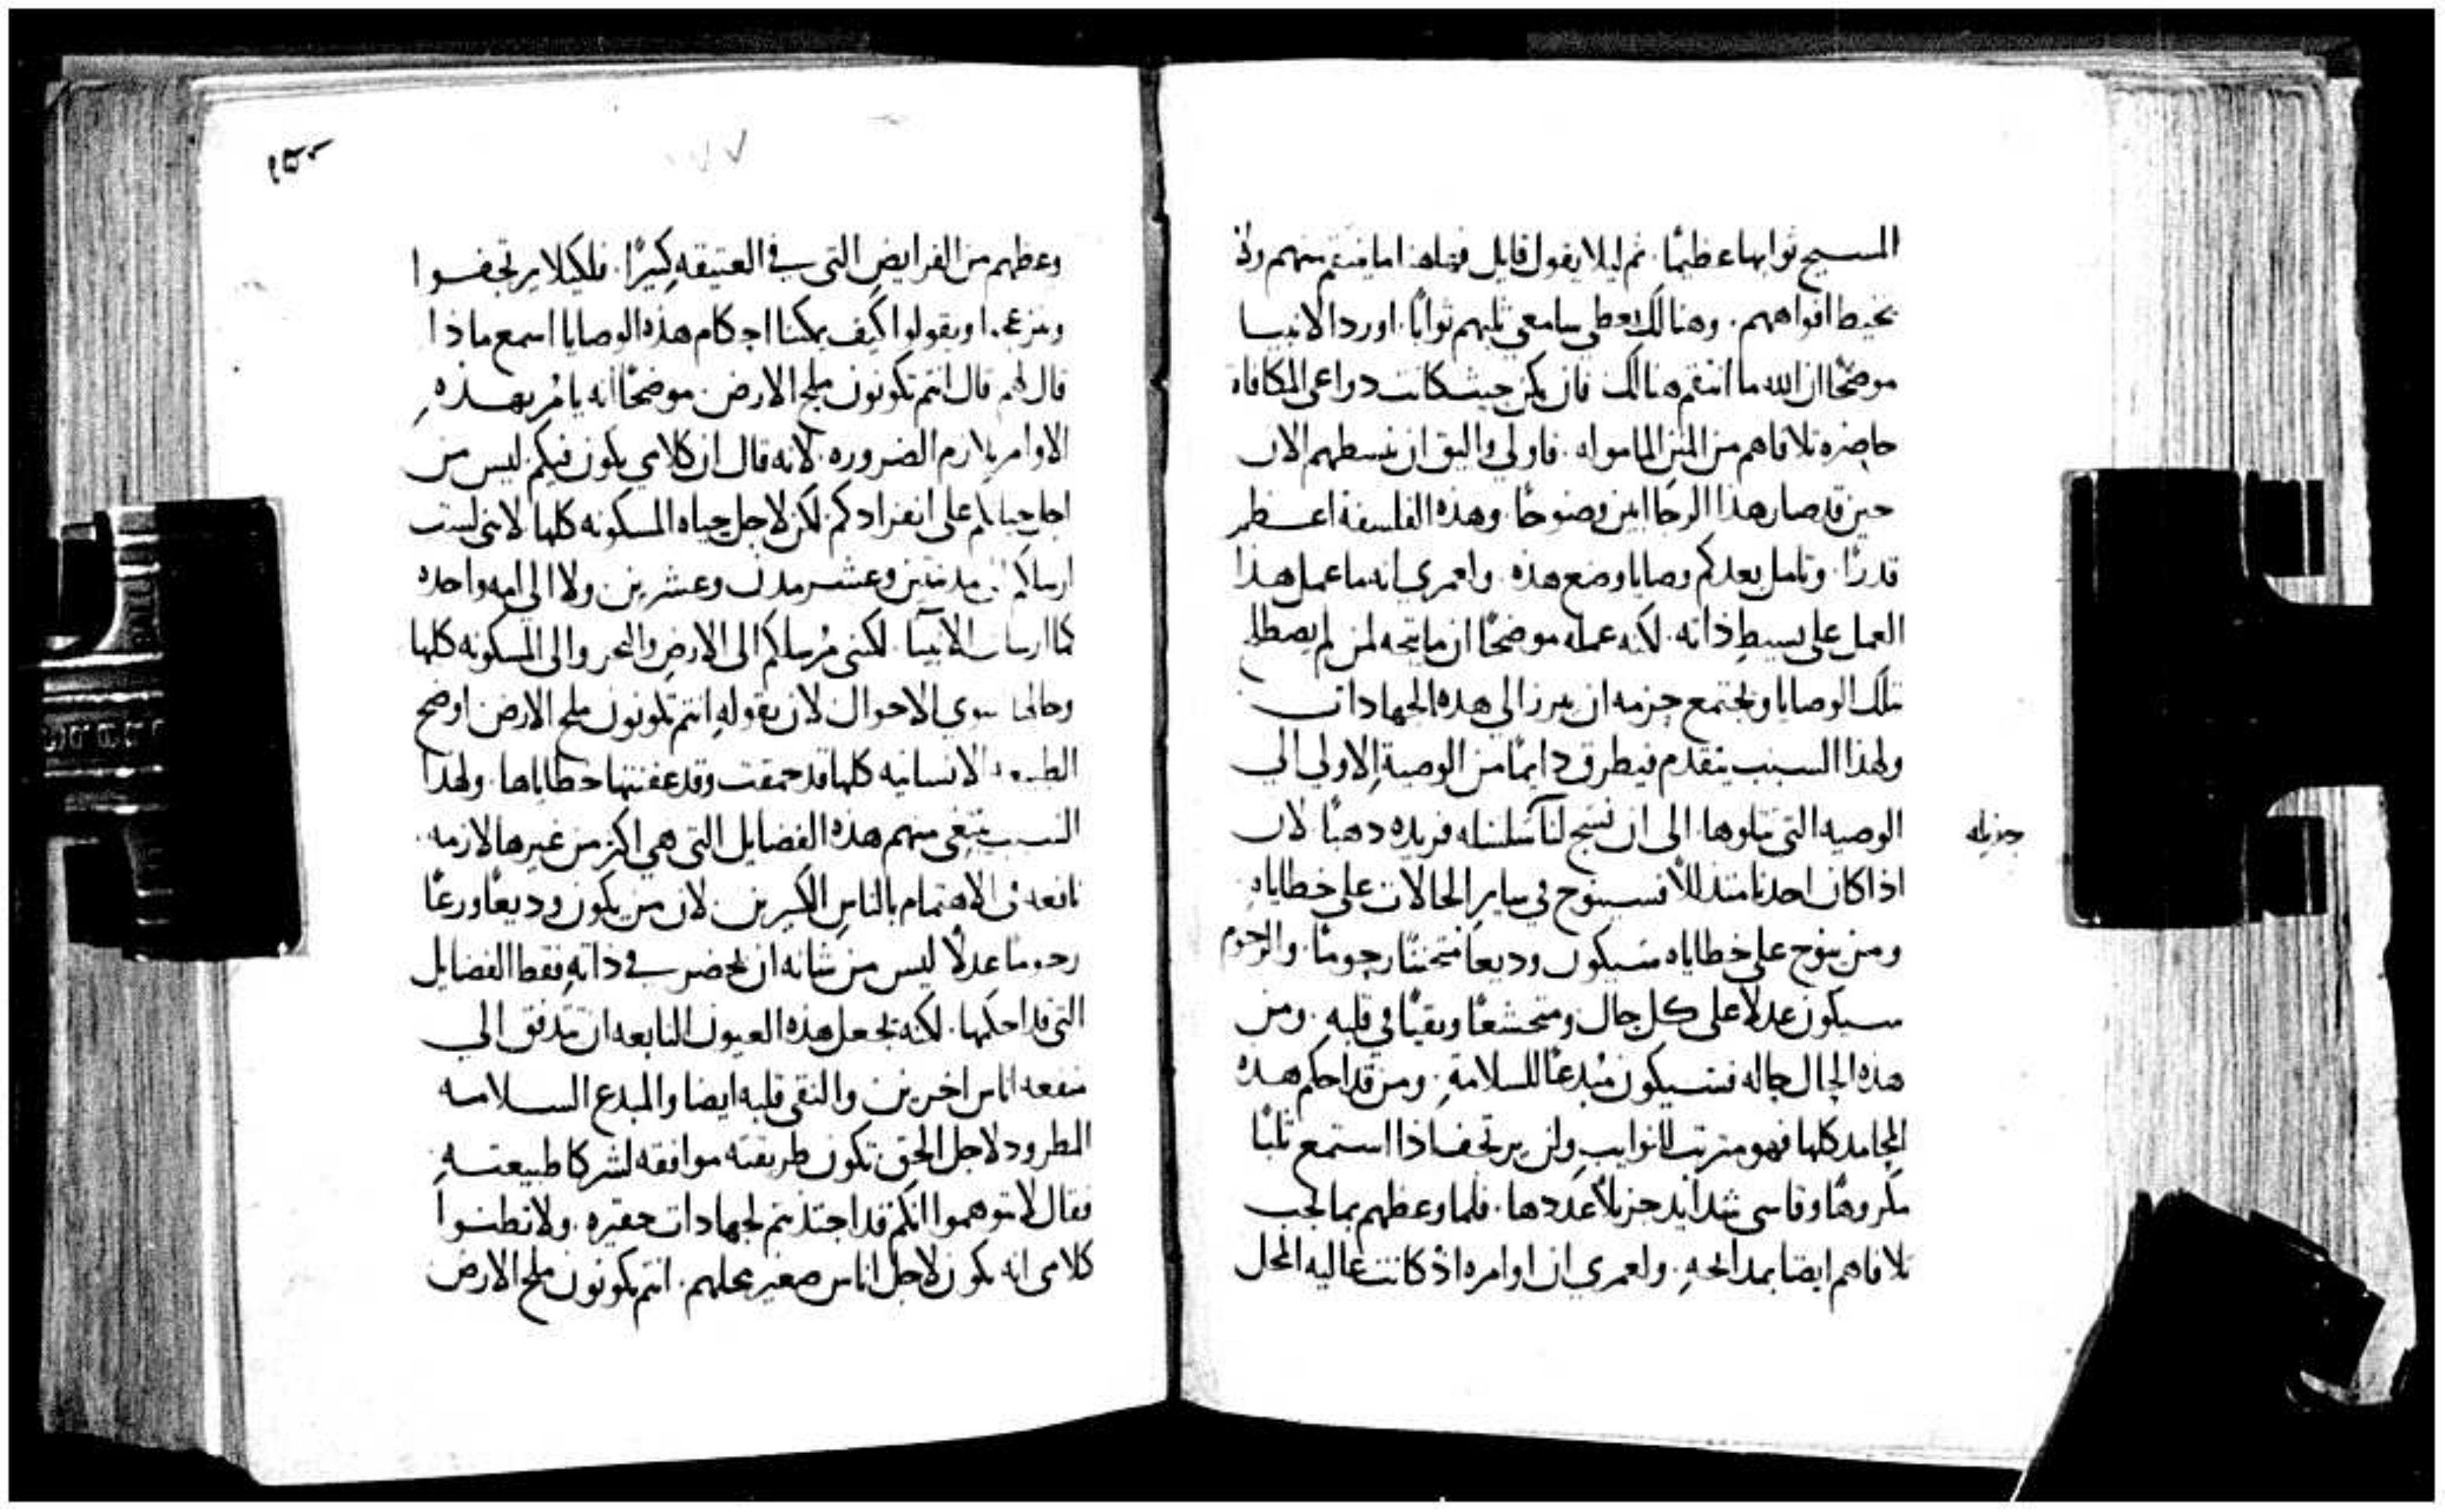 المسيح ثوابها عظيمًا. ثم ليلا يقول قايل فهاهنا ما ينتقم منهم ولا
يخيط افواههم. وهنالك يعطي سامعي ثلبهم ثوابًا. اورد الانبيا
موضحًا ان الله ما انتقم هنالك فان يكن حيث كانت دواعي المكافاه
حاضره تلافاهم من المنن المامواه. فاولى واليق ان ينسطهم الان
حين قد صار هذا الرجا ابين وضوحًا. وهذه الفلسفة اعظم
قدرًا. وتامل بعد كم وصايا وضع هذه. ولعمري انه ما عمل هذا
العمل على بسيط ذاته. لكنه عمله موضحًا ان ما يتجه لمن لم يصطل
تلك الوصايا ويجتمع حزمه ان يبرز الى هذه الجهادات
ولهذا السبب يتقدم فيطرق دايمًا من الوصية الاولى الى
الوصيه التي تتلوها. الى ان نسج لنا سلسله فريده دهبًا لان
جزيله
اذا كان احدنا متذللاً فسينوح في ساير الحالات على خطاياه
ومن ينوح على خطاياه سيكون وديعا متحننًا رحومًا. والرحوم
سيكون عدلاً على كل حال ومتخشعًا ونقيًا في قلبه. ومن
هذه الحال حاله فسيكون مبدعًا للسلامة. ومن قد احكم هذه
المحامد كلها فهو مترتب للنوايب ولن يرتجف اذا استمع ثلبًا
مكروهًا وقاسى شدايد جزيلاً عددها. فلما وعظهم بما يجب
تلافاهم ايضا بمدايحه. ولعمري ان اوامره اذ كانت عاليه المحل
وعظهم من الفرايض التي في العتيقه كثيرًا. فلكيلا يرتجفوا
وينزعجوا ويقولوا كيف يمكننا احكام هذه الوصايا اسمع ماذا
قال لهم قال انتم تكونون ملح الارض. موضحًا انه يامر بهذه
الاوامر بلازم الضروره. لانه قال ان كلامي يكون فيكم ليس من
اجل حياتكم على انفرادكم. لكن لاجل حياه المسكونه كلها لانني لست
ارسلكم الى مدينتين وعشر مدن وعشرين. ولا الى امه واحده
كما ارسلت الانبيا. لكنني مرسلكم الى الارض والبحر والى المسكونه كلها
وحالها سوي الاحوال لان بقوله انتم تكونون ملح الارض اوضح
الطبيعه الانسانيه كلها قد حمقت وقد عفنتها خطاياها. ولهذا
السبب يبتغي منهم هذه الفضايل التي هي اكثر من غيرها لازمه.
نافعه في الاهتمام بالناس الكثيرين. لان من يكون وديعا ورعًا
رحوما عدلًا ليس من شانه ان يحضر في ذاته فقط الفضايل
التي قد احكمها. لكنه يجعل هذه العيون النابعه ان تتدفق الى
منفعه اناس اخرين. والنقي قلبه ايضا والمبدع السلامه
المطرود لاجل الحق تكون طريقته موافقه لشركا طبيعته
فقال لا تتوهموا انكم قد اجتذبتم لجهادات حقيره. ولا تظنوا
كلامي انه يكون لاجل اناس صغير محلهم. انتم تكونون ملح الارض